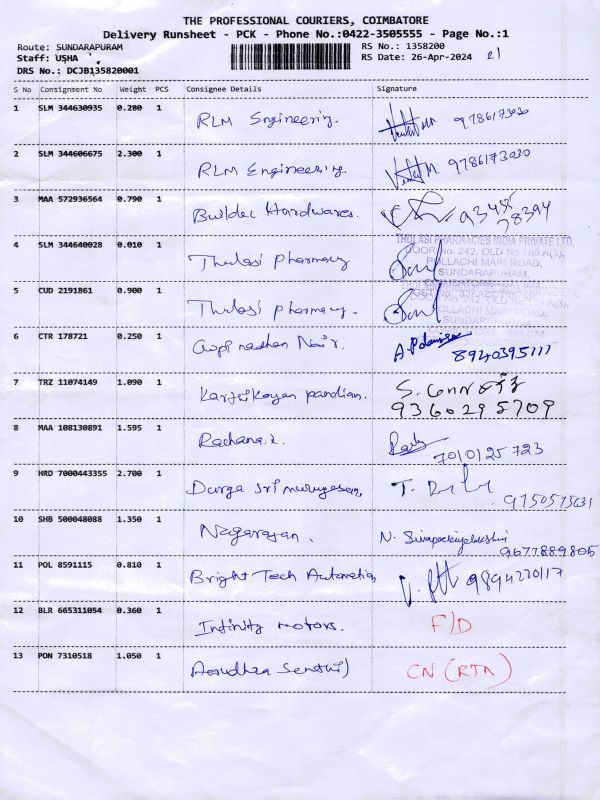 THE PROFESSIONAL COURIERS, COIMBATORE
Delivery Runsheet - PCK - Phone No.:0422-3505555 - Page No.:1
Route: SUNDARAPURAM RS No.: 1358200
Staff: USHA RS Date: 26-Apr-2024 21
DRS No.: DCJB135820001
S No Consignment No Weight PCS Consignee Details Signature
1 SLM 344630935 0.280 1 RLM Engineering. 9786173030
2 SLM 344606675 2.300 1 RLM Engineering. 9786173030
3 MAA 572936564 0.790 1 Buildec Hardwares.
4 SLM 344640028 0.010 1 Thulasi pharmacy
THULASI PHARMACIES INDIA PRIVATE LTD.
DOOR No. 242, OLD No.169 A(3),
POLLACHI MAIN ROAD,
SUNDARAPURAM,
5 CUD 2191861 0.900 1 Thulasi pharmacy.
POLLACHI MAIN ROAD,
6 CTR 178721 0.250 1 Nair. 8940395111
7 TRZ 11074149 1.090 1 Karthikeyan pandian. S.
9360295709
8 MAA 108130891 1.595 1 Rachana.
7010125723
9 HRD 7000443355 2.700 1 Durga Sri murugesan,
9750575631
10 SHB 500048088 1.350 1 Nagarajan. N.
9677889805
11 POL 8591115 0.810 1 Bright Tech Automation 9894220117
12 BLR 665311054 0.360 1 Infinity motors. F/D
13 PON 7310518 1.050 1 CN (RTN)